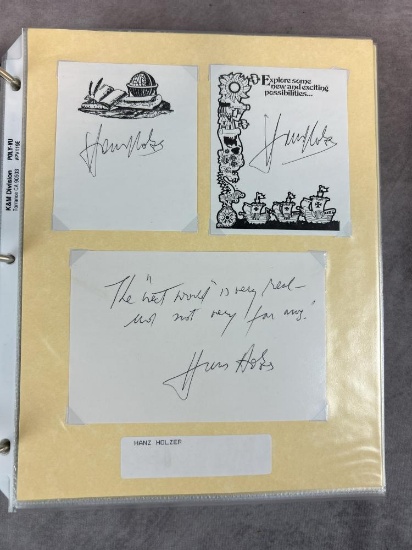 K&M Division
Torrance CA 90503
POLY-VU
Explore some
new and exciting
possibilities...
Hans Holzer
Hans Holzer
The "next world" is very real—
and not very far away!
Hans Holzer
HANZ HOLZER